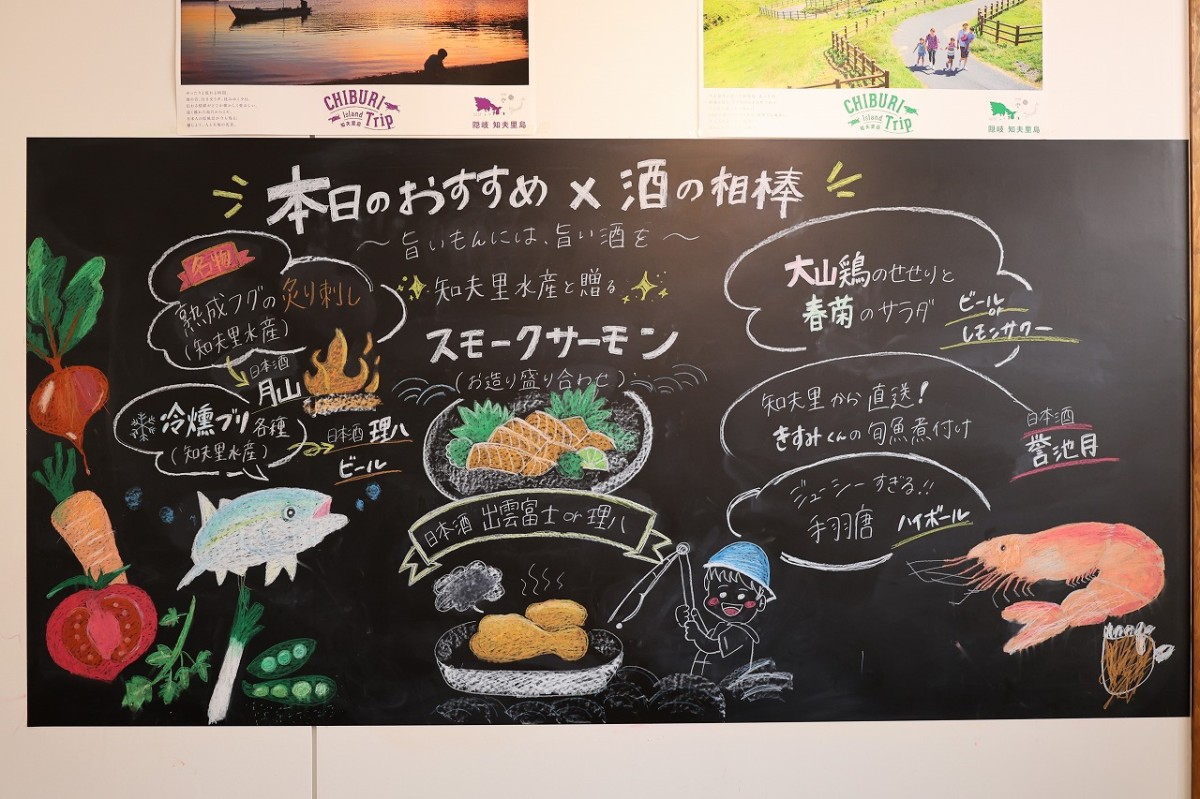 CHIBURI
island
Trip
知夫里島
隠岐 知夫里島
CHIBURI
island
Trip
知夫里島
隠岐 知夫里島
本日のおすすめ × 酒の相棒
～旨いもんには、旨い酒を～
名物
熟成フグの炙り刺し
(知夫里水産)
日本酒
月山
冷燻ブリ各種
(知夫里水産)
日本酒 理八
ビール
知夫里水産と贈る
スモークサーモン
(お造り盛り合わせ)
日本酒 出雲富士 or 理八
大山鶏のせせりと
春菊のサラダ
ビール
or
レモンサワー
知夫里から直送!
きすみくんの旬魚煮付け
日本酒
誉池月
ジューシーすぎる!!
手羽唐
ハイボール